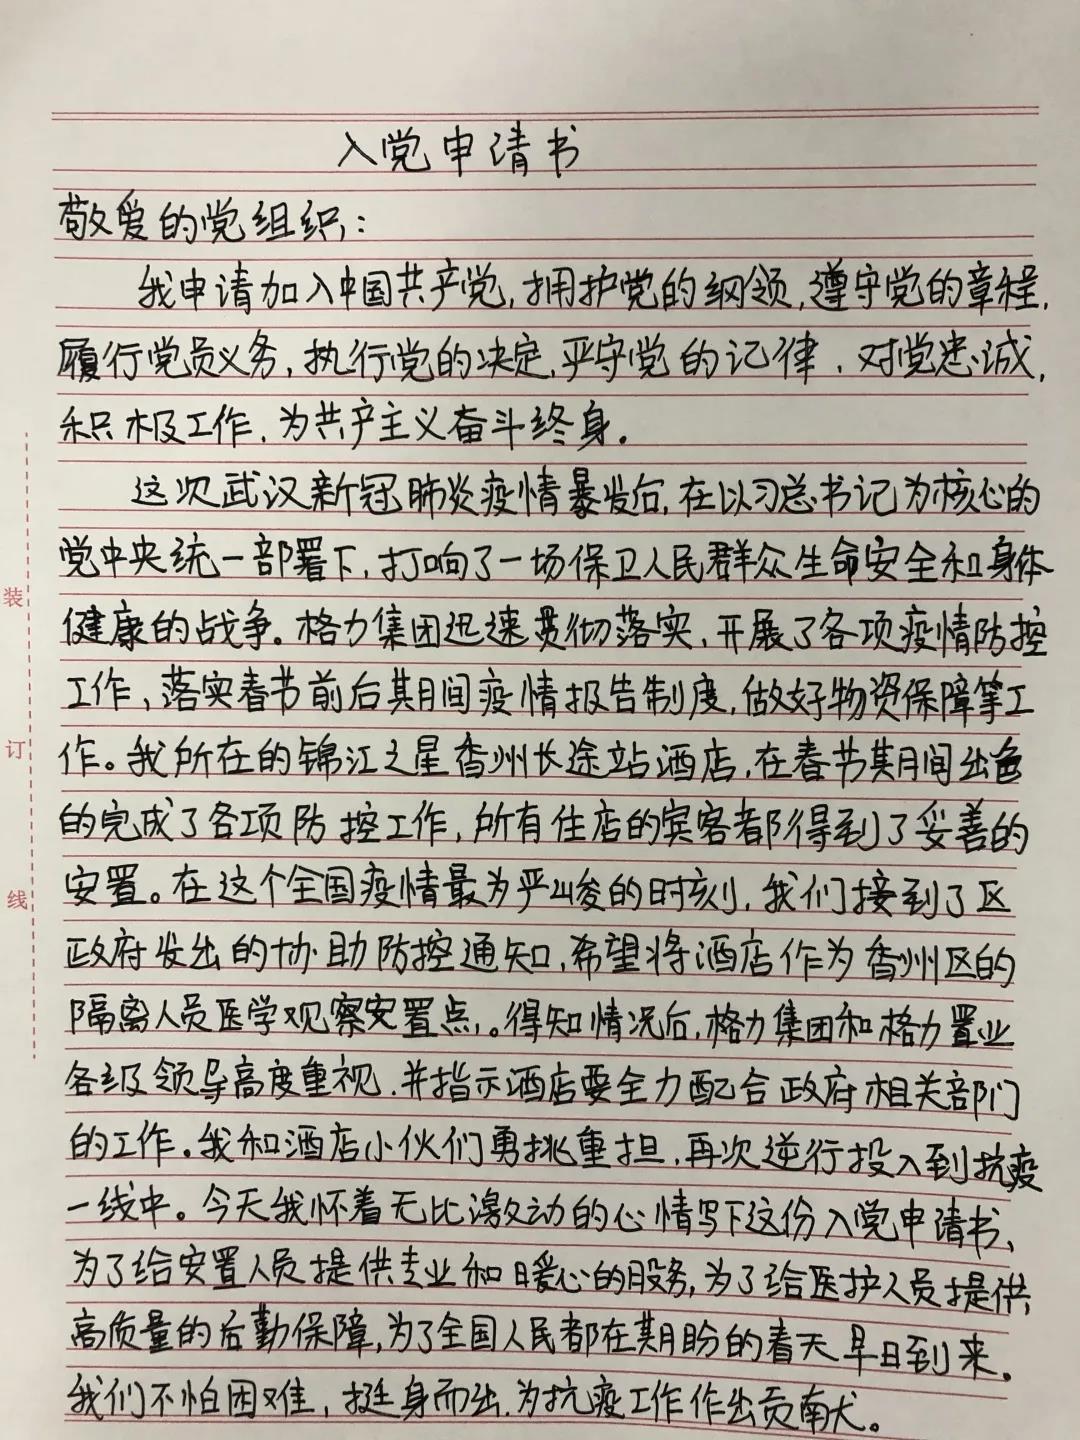 入党申请书
敬爱的党组织：
我申请加入中国共产党，拥护党的纲领，遵守党的章程，
履行党员义务，执行党的决定，严守党的记律，对党忠诚，
积极工作，为共产主义奋斗终身。
这次武汉新冠肺炎疫情暴发后，在以习总书记为核心的
党中央统一部署下，打响了一场保卫人民群众生命安全和身体
健康的战争。格力集团迅速贯彻落实，开展了各项疫情防控
工作，落实春节前后期间疫情报告制度，做好物资保障等工
作。我所在的锦江之星香州长途站酒店，在春节期间出色
的完成了各项防控工作，所有住店的宾客都得到了妥善的
安置。在这个全国疫情最为严峻的时刻，我们接到了区
政府发出的协助防控通知，希望将酒店作为香州区的
隔离人员医学观察安置点，。得知情况后，格力集团和格力置业
各级领导高度重视，并指示酒店要全力配合政府相关部门
的工作。我和酒店小伙们勇挑重担，再次逆行投入到抗疫
一线中。今天我怀着无比激动的心情写下这份入党申请书、
为了给安置人员提供专业和暖心的服务，为了给医护人员提供，
高质量的后勤保障，为了全国人民都在期盼的春天早日到来。
我们不怕困难，挺身而出，为抗疫工作作出贡献。
装
订
线